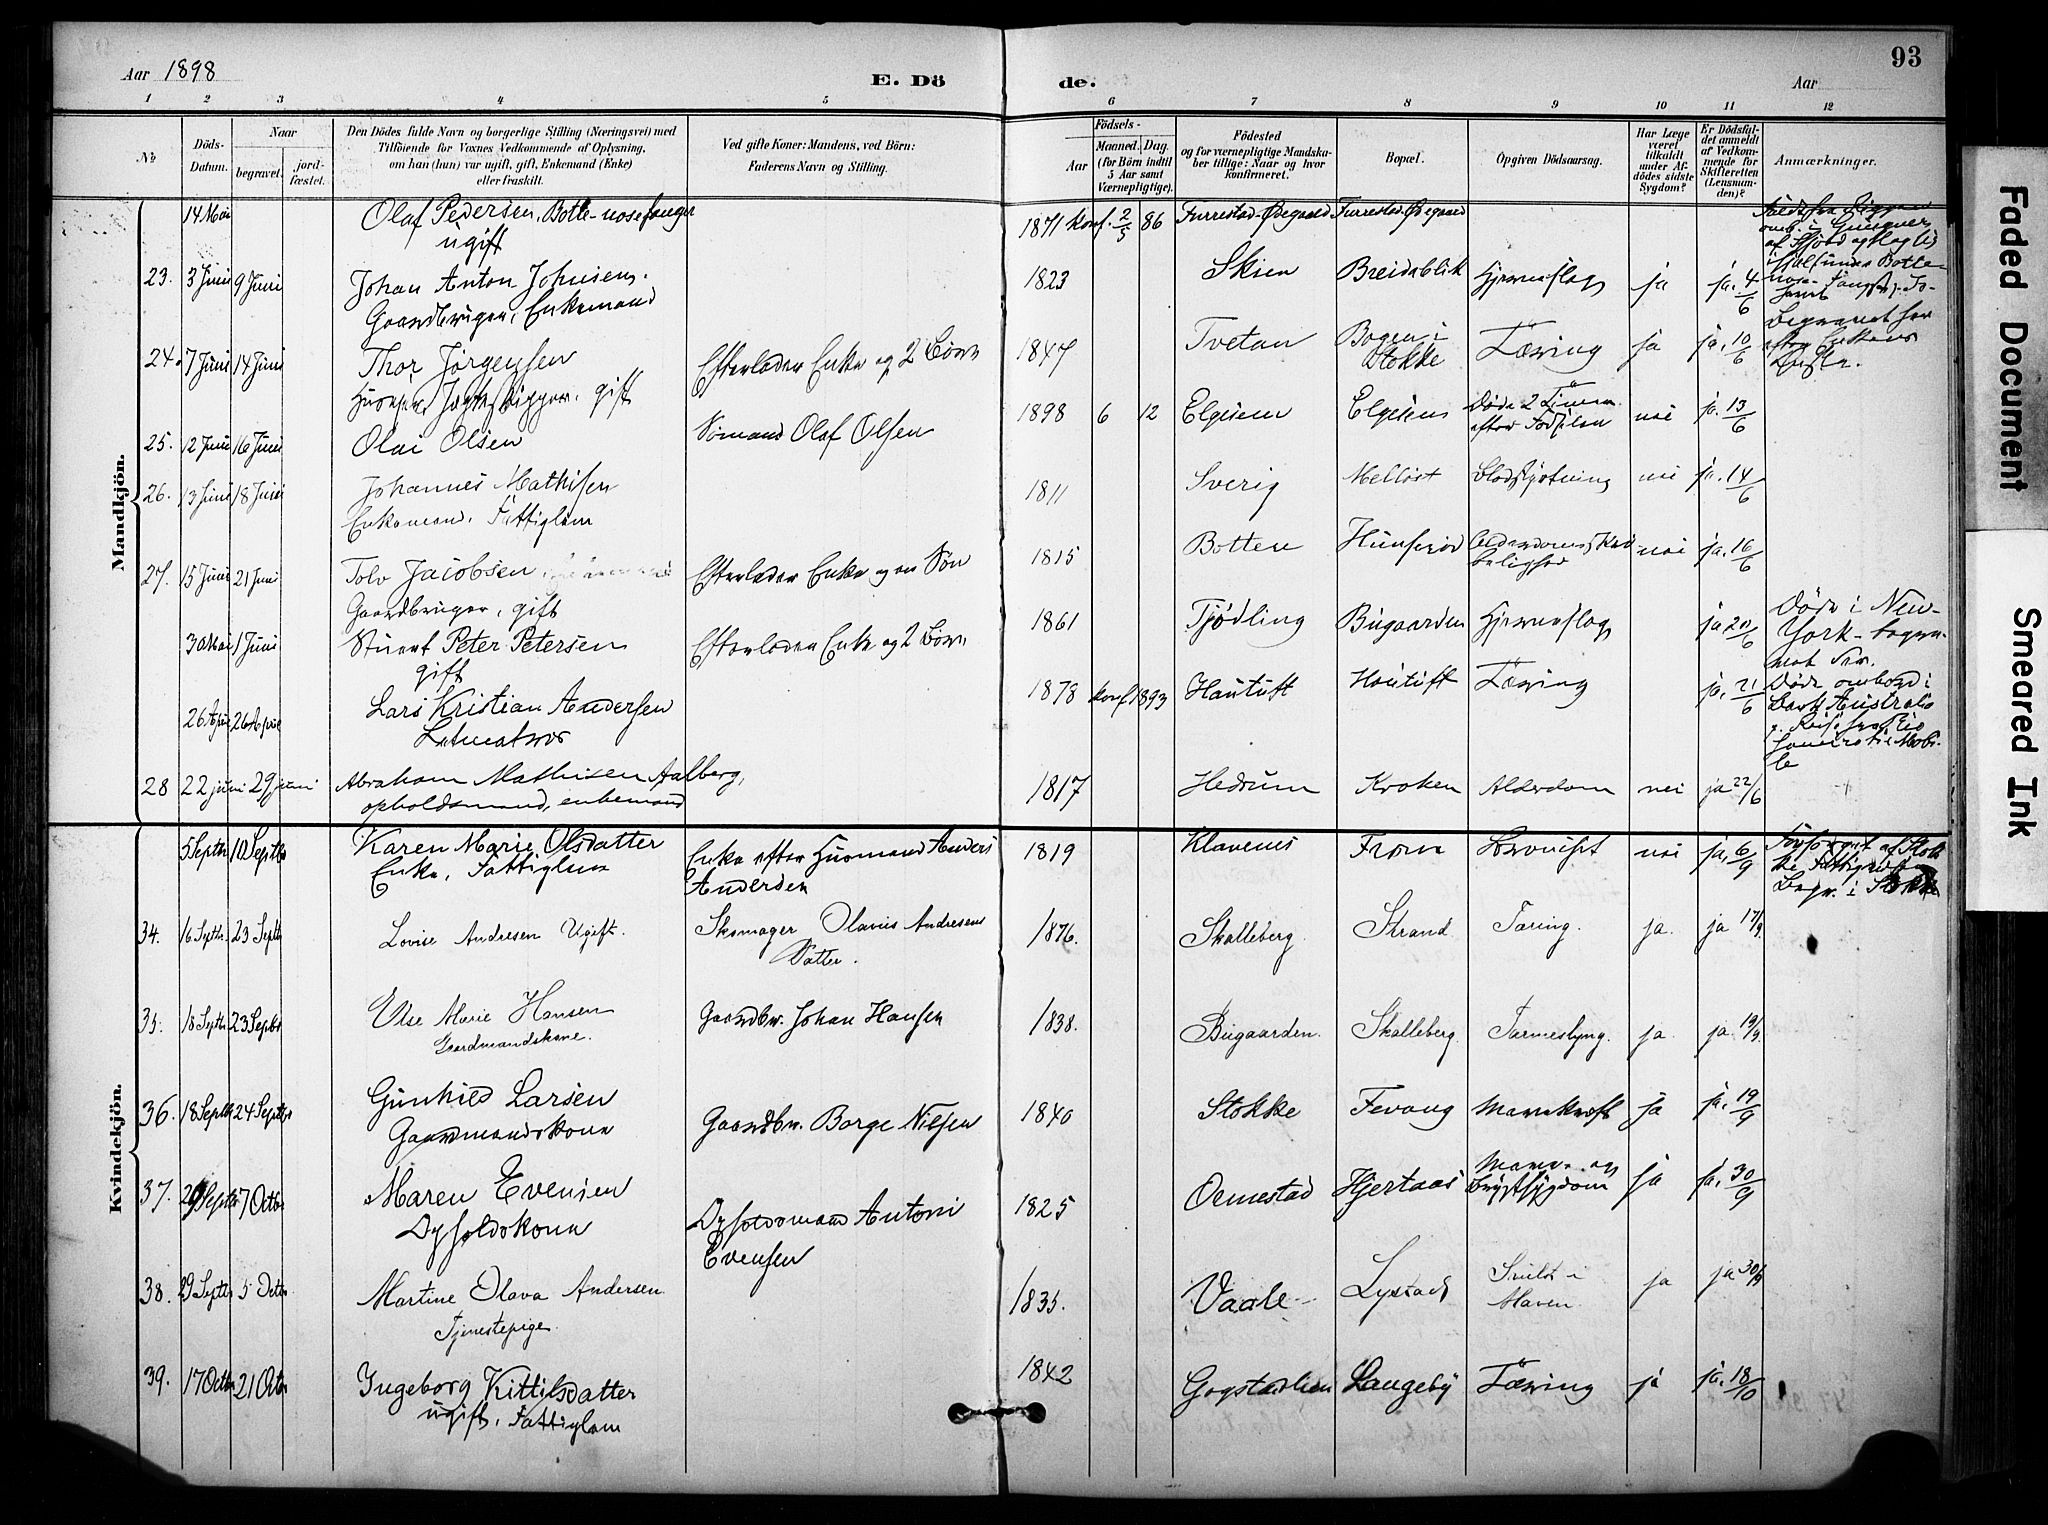 93
Aar 1898
E. Dö de.
Aar
1 2 3 4 5 6 7 8 9 10 11 12
No
Döds-Datum.
Naar
begravet.
jord-fæstet.
Den Dödes fulde Navn og borgerlige Stilling (Næringsvei) med
Tilföiende for Voxnes Vedkommende af Oplysning,
om han (hun) var ugift, gift, Enkemand (Enke)
eller fraskilt.
Ved gifte Koner: Mandens, ved Börn:
Faderens Navn og Stilling.
Födsels-
Aar
Maaned. Dag.
(for Börn indtil
5 Aar samt
Værnepligtige).
Födested
og for værnepligtige Mandska-
ber tillige: Naar og hvor
konfirmeret.
Bopæl.
Opgiven Dödsaarsag.
Har Læge
været
tilkaldt
under Af-
dödes sidste
Sygdom?
Er Dödsfal-
det anmeldt
af Vedkom-
mende for
Skifteretten
(Lensman-
den)?
Anmærkninger.
Mandkjön.
14 Mai Olaf Pedersen, Bottle-nosefanger 1871 Konf. 2/5 86 Furrestad-Ødegaard Furrestad-Ødegaard
ugift
23. 3 Juni 9 Juni Johan Anton Johnsen. 1823 Skien Breidablik Hjerneslag ja ja. 4/6
Gaardbruger, Enkemand
24. 7 Juni 14 Juni Thor Jørgensen Efterlader Enke og 2 Børn 1847 Tvetan Bogen i Stokke Tæring ja ja. 10/6
gift
25. 12 Juni 16 Juni Olai Olsen Sømand Olaf Olsen 1898 6 12 Elgesem Elgesem Døde 2 Timer efter Fødselen nei ja. 13/6
26. 13 Juni 18 Juni Johannes Mathisen 1811 Sverig Melløst Blodstyrtning nei ja. 14/6
Enkemand. Fattiglem
27. 15 Juni 21 Juni Tolv Jacobsen Efterlader Enke og en Søn 1815 Botten nei ja. 16/6
Gaardbruger, gift
30 Mai 1 Juni Stuert Peter Petersen Efterlader Enke og 2 Børn 1861 Tjødling Bugaarden Hjerneslag ja 20/6 Døde i New-
York-begra-
vet der.
gift
26 April 26 April Lars Kristian Andersen 1878 Konf. 1893 Hautuft Hautuft Tæring ja. 21/6 Døde ombord i
Bark Australia
Letmatros
28 22 juni 29 juni Abraham Mathisen Aalberg, 1817 Hedrum Kroken Alderdom nei ja 22/6
opholdsmand, enkemand
Kvindekjön.
5 Septbr 10 Septbr Karen Marie Olsdatter Enke efter Husmand Anders 1819 Klavenes nei ja. 6/9
Enke, Fattiglem Andersen
34. 16 Septbr. 23 Septbr Lovise Andresen Ugift. Skomager Olavus Andresens 1876. Skalleberg. Strand Tæring. ja. ja 17/9.
Datter.
35. 18 Septbr 23 Septbr Else Marie Hansen Gaardbr. Johan Hansen 1838. Bugaarden. Skalleberg. Tarmeslyng. ja. ja. 19/9
Gaardmandskone.
36. 18 Septbr 24 Septbr Gunhild Larsen Gaardbr. Borge Nilsen 1840 Stokke Fevang Mavekræft ja ja. 19/9
Gaardmandskone
37. 29 Septbr 7 Octbr Maren Evensen Opholdsmand Antoni 1825 Ormestad Hjertaas Mave- og Brystsygdom ja ja. 30/9
Opholdskone Evensen
38. 29 Septbr 5 Octbr Martine Olava Andersen 1835. Vaale Lystad Svulst i Maven. ja ja 30/9
Tjenestepige.
39. 17 Octbr 21 Octbr Ingeborg Kittilsdatter 1842 Gogstadlien Langeby Tæring ja ja. 18/10
ugift, Fattiglem
Faded Document
Smeared Ink